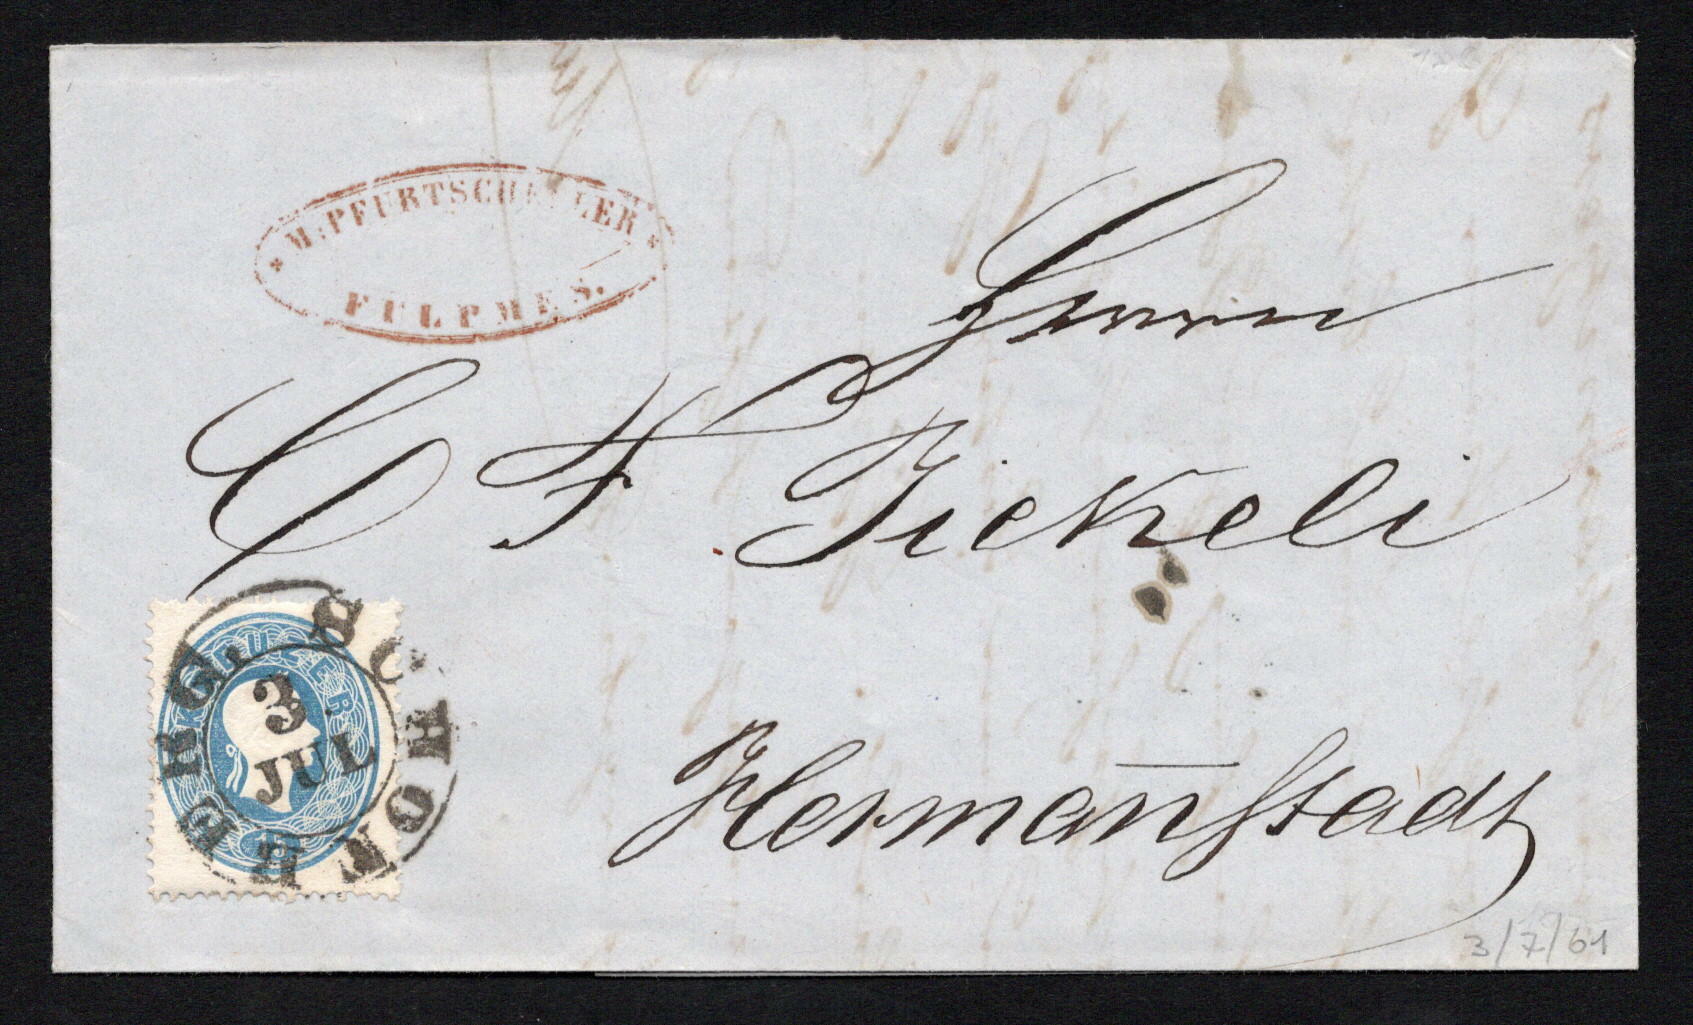 M. PFURTSCHELLER
FULPMES.
Herrn
C F Jickeli
Hermanstadt
SCHÖNBERG.
3
JUL
KREUZER
15
3/7/61